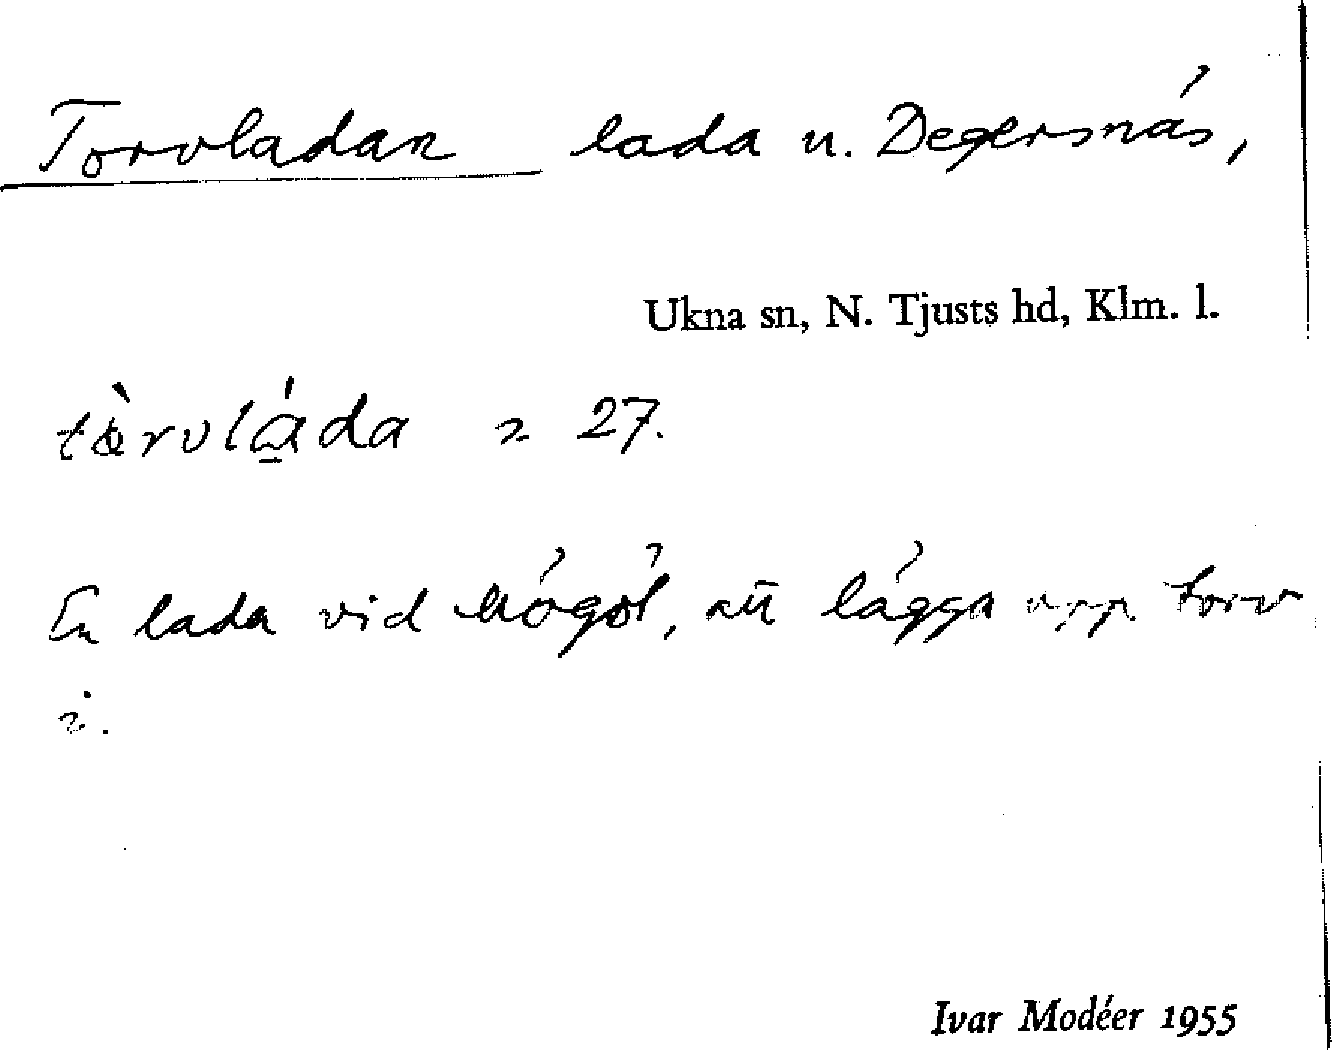 Torvladan lada u. Degersnäs,
Ukna sn, N. Tjusts hd, Klm. l.
tòrvlá̱da 2 27.
En lada vid Mögöl, att lägga upp torv
i.
Ivar Modéer 1955